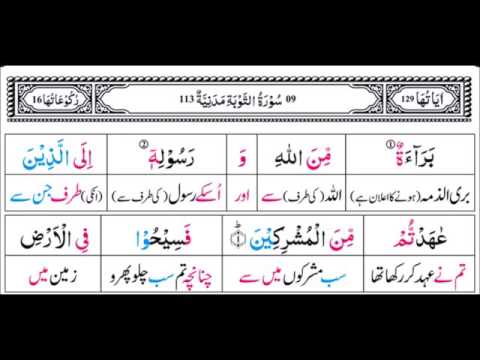 اٰيَاتُهَا 129 09 سُوْرَةُ التَّوْبَةِ مَدَنِيَّةٌ 113 رُكُوْعَاتُهَا 16
بَرَآءَةٌ ① مِّنَ اللّٰهِ وَ رَسُوْلِهٖۤ ② اِلَى الَّذِيْنَ
بری الذمہ (ہونے کا اعلان ہے) اللہ (کی طرف) سے اور اُسکے رسول (کی طرف سے) (انکی) طرف جن سے
عٰهَدْتُّمْ مِّنَ الْمُشْرِكِيْنَ ① فَسِيْحُوْا فِى الْاَرْضِ
تم نے عہد کر رکھا تھا سب مشرکوں میں سے چنانچہ تم سب چلو پھرو زمین میں